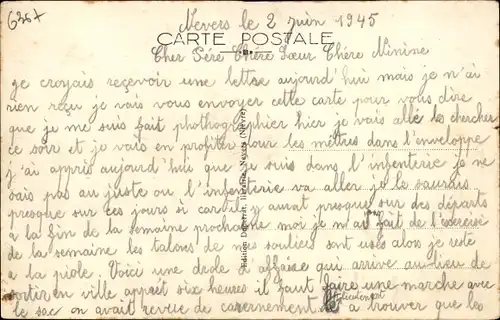 6367
Nevers le 2 Juin 1945
CARTE POSTALE
Cher Pére Chére Sœur Chére Minine
je croyais reçevoir une lettre aujourd'hui mais je n'ai
rien reçu je vais vous envoyer cette carte pour vous dire
que je me suis fait photographier hier je vais allé les chercher
ce soir et je vais en profiter pour les mettres dans l'enveloppe
j'ai appris aujourd'hui que je suis dans l'infenterie je ne
sais pas au juste ou l'infenterie va aller je le saurais
presque sur ces jours si car il y aurat presque sur des départs
a la fin de la semaine prochaine moi je n'ai pas fait de l'exercise
de la semaine les talons de mes souliers sont usés alors je reste
a la piole. Voici une drole d'affaire qui arrive au lieu de
sortir en ville appret six heures il faut faire une marche avec
le sac on avait revue de casernement a trouver que les
Edition Librairie, Nevers (Nièvre)